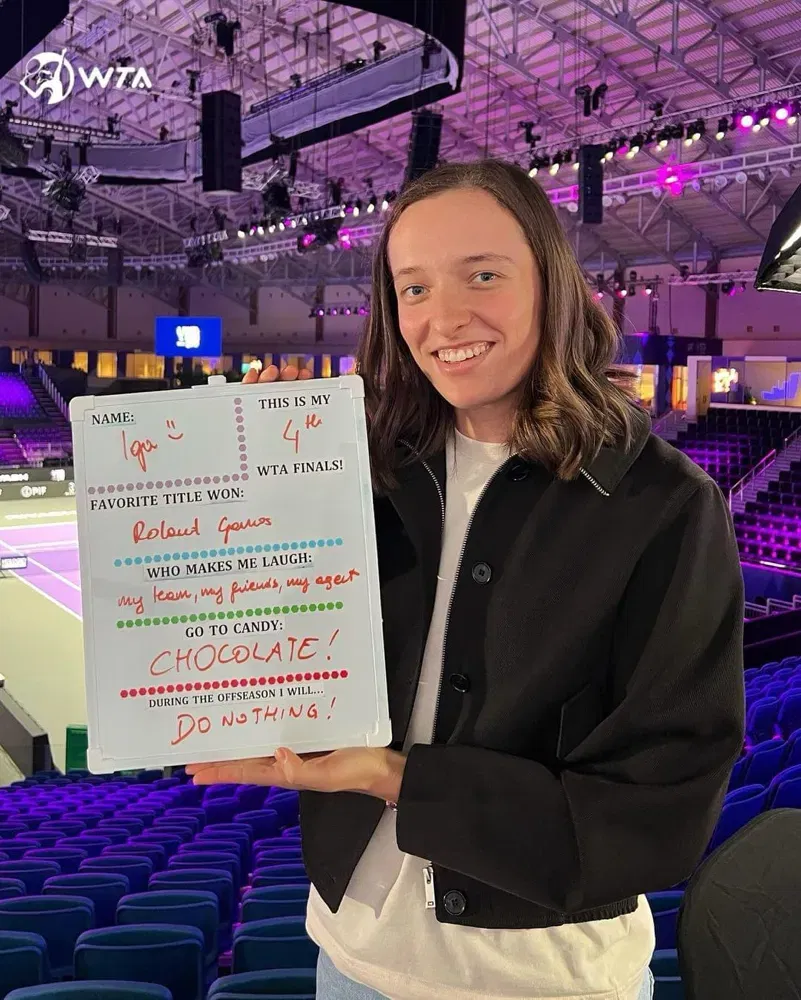 WTA
NAME:
Iga :)
THIS IS MY
4th
WTA FINALS!
FAVORITE TITLE WON:
Roland Garros
WHO MAKES ME LAUGH:
my team, my friends, my agent
GO TO CANDY:
CHOCOLATE!
DURING THE OFFSEASON I WILL...
DO NOTHING!
PIF